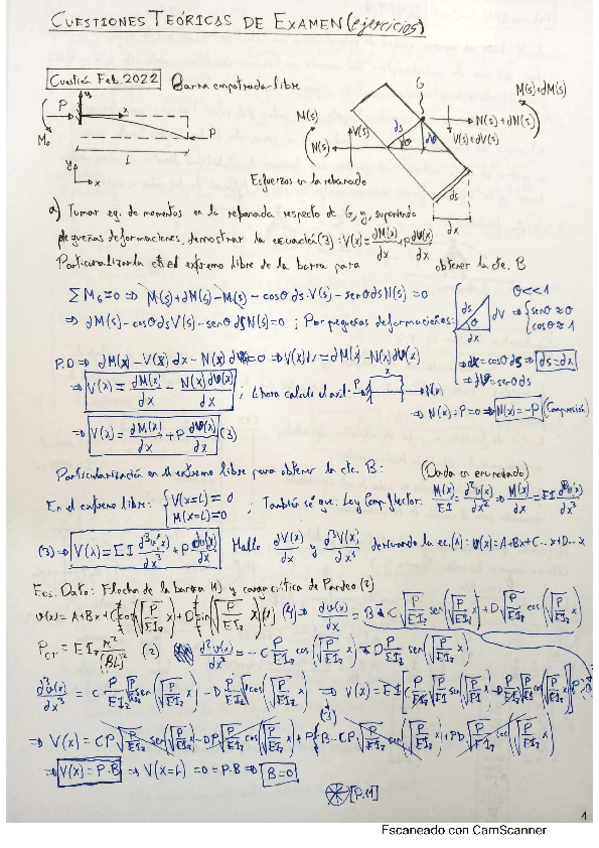 CUESTIONES TEÓRICAS DE EXAMEN (ejercicios)
Cuestión Feb. 2022 Barra empotrada-libre
P x P
M₀
L
y
x
G
M(s) ds dv N(s)+dN(s) M(s)+dM(s)
N(s) V(s) θ V(s)+dV(s)
ds
dx
Esfuerzos en la rebanada
a) Tomar eq. de momentos en la rebanada respecto de G, y, suponiendo
pequeñas deformaciones, demostrar la ecuación (3): V(x) = dM(x)/dx + P dv(x)/dx
Particularizarla en el extremo libre de la barra para obtener la cte. B
ΣM_G = 0 ⇒ M(s) + dM(s) - M(s) - cosθ ds·V(s) - senθ ds N(s) = 0
⇒ dM(s) - cosθ ds V(s) - senθ ds N(s) = 0 ; Por pequeñas deformaciones:
ds dv θ dx
θ<<1
⇒ {senθ ≈ θ
cosθ ≈ 1
⇒ dx = cosθ ds ⇒ ds = dx
⇒ dv = senθ ds
P.D ⇒ dM(x) - V(x) dx - N(x) dv = 0 ⇒ V(x) dx = dM(x) - N(x) dv(x)
⇒ V(x) = dM(x)/dx - N(x) dv(x)/dx ; Ahora calculo el axil: P x N(x)
⇒ N(x) + P = 0 ⇒ N(x) = -P (Compresión)
⇒ V(x) = dM(x)/dx + P dv(x)/dx (3)
Particularización en el extremo libre para obtener la cte. B: (Dada en enunciado)
En el extremo libre: {V(x=L) = 0
M(x=L) = 0 ; También sé que: Ley Comp. flector: M(x)/EI = d²v(x)/dx² ⇒ dM(x)/dx = EI d³v(x)/dx³
(3) ⇒ V(x) = EI d³v(x)/dx³ + P dv(x)/dx Hallo dv(x)/dx y d³v(x)/dx³ derivando la ec. (1): v(x) = A + Bx + C...x + D...x
Ecs. Dato: Flecha de la barra (1) y carga crítica de Pandeo (2)
v(x) = A + Bx + C cos(√(P/EI₂) x) + D sin(√(P/EI₂) x) (1) ⇒ dv(x)/dx = B - C √(P/EI₂) sen(√(P/EI₂) x) + D √(P/EI₂) cos(√(P/EI₂) x)
P_cr = EI₂ π²/(βL)² (2) d²v(x)/dx² = -C P/EI₂ cos(√(P/EI₂) x) - D P/EI₂ sen(√(P/EI₂) x)
d³v(x)/dx³ = C P/EI₂ √(P/EI₂) sen(√(P/EI₂) x) - D P/EI₂ √(P/EI₂) cos(√(P/EI₂) x) ⇒ V(x) = EI
(3)
⇒ V(x) = CP √(P/EI₂) sen(√(P/EI₂) x) - DP √(P/EI₂) cos(√(P/EI₂) x) + P {B - CP √(P/EI₂) sen(√(P/EI₂) x) + PD √(P/EI₂) cos(√(P/EI₂) x)
⇒ V(x) = P·B ⇒ V(x=L) = 0 = P·B ⇒ B = 0
[P.M]
1
Escaneado con CamScanner